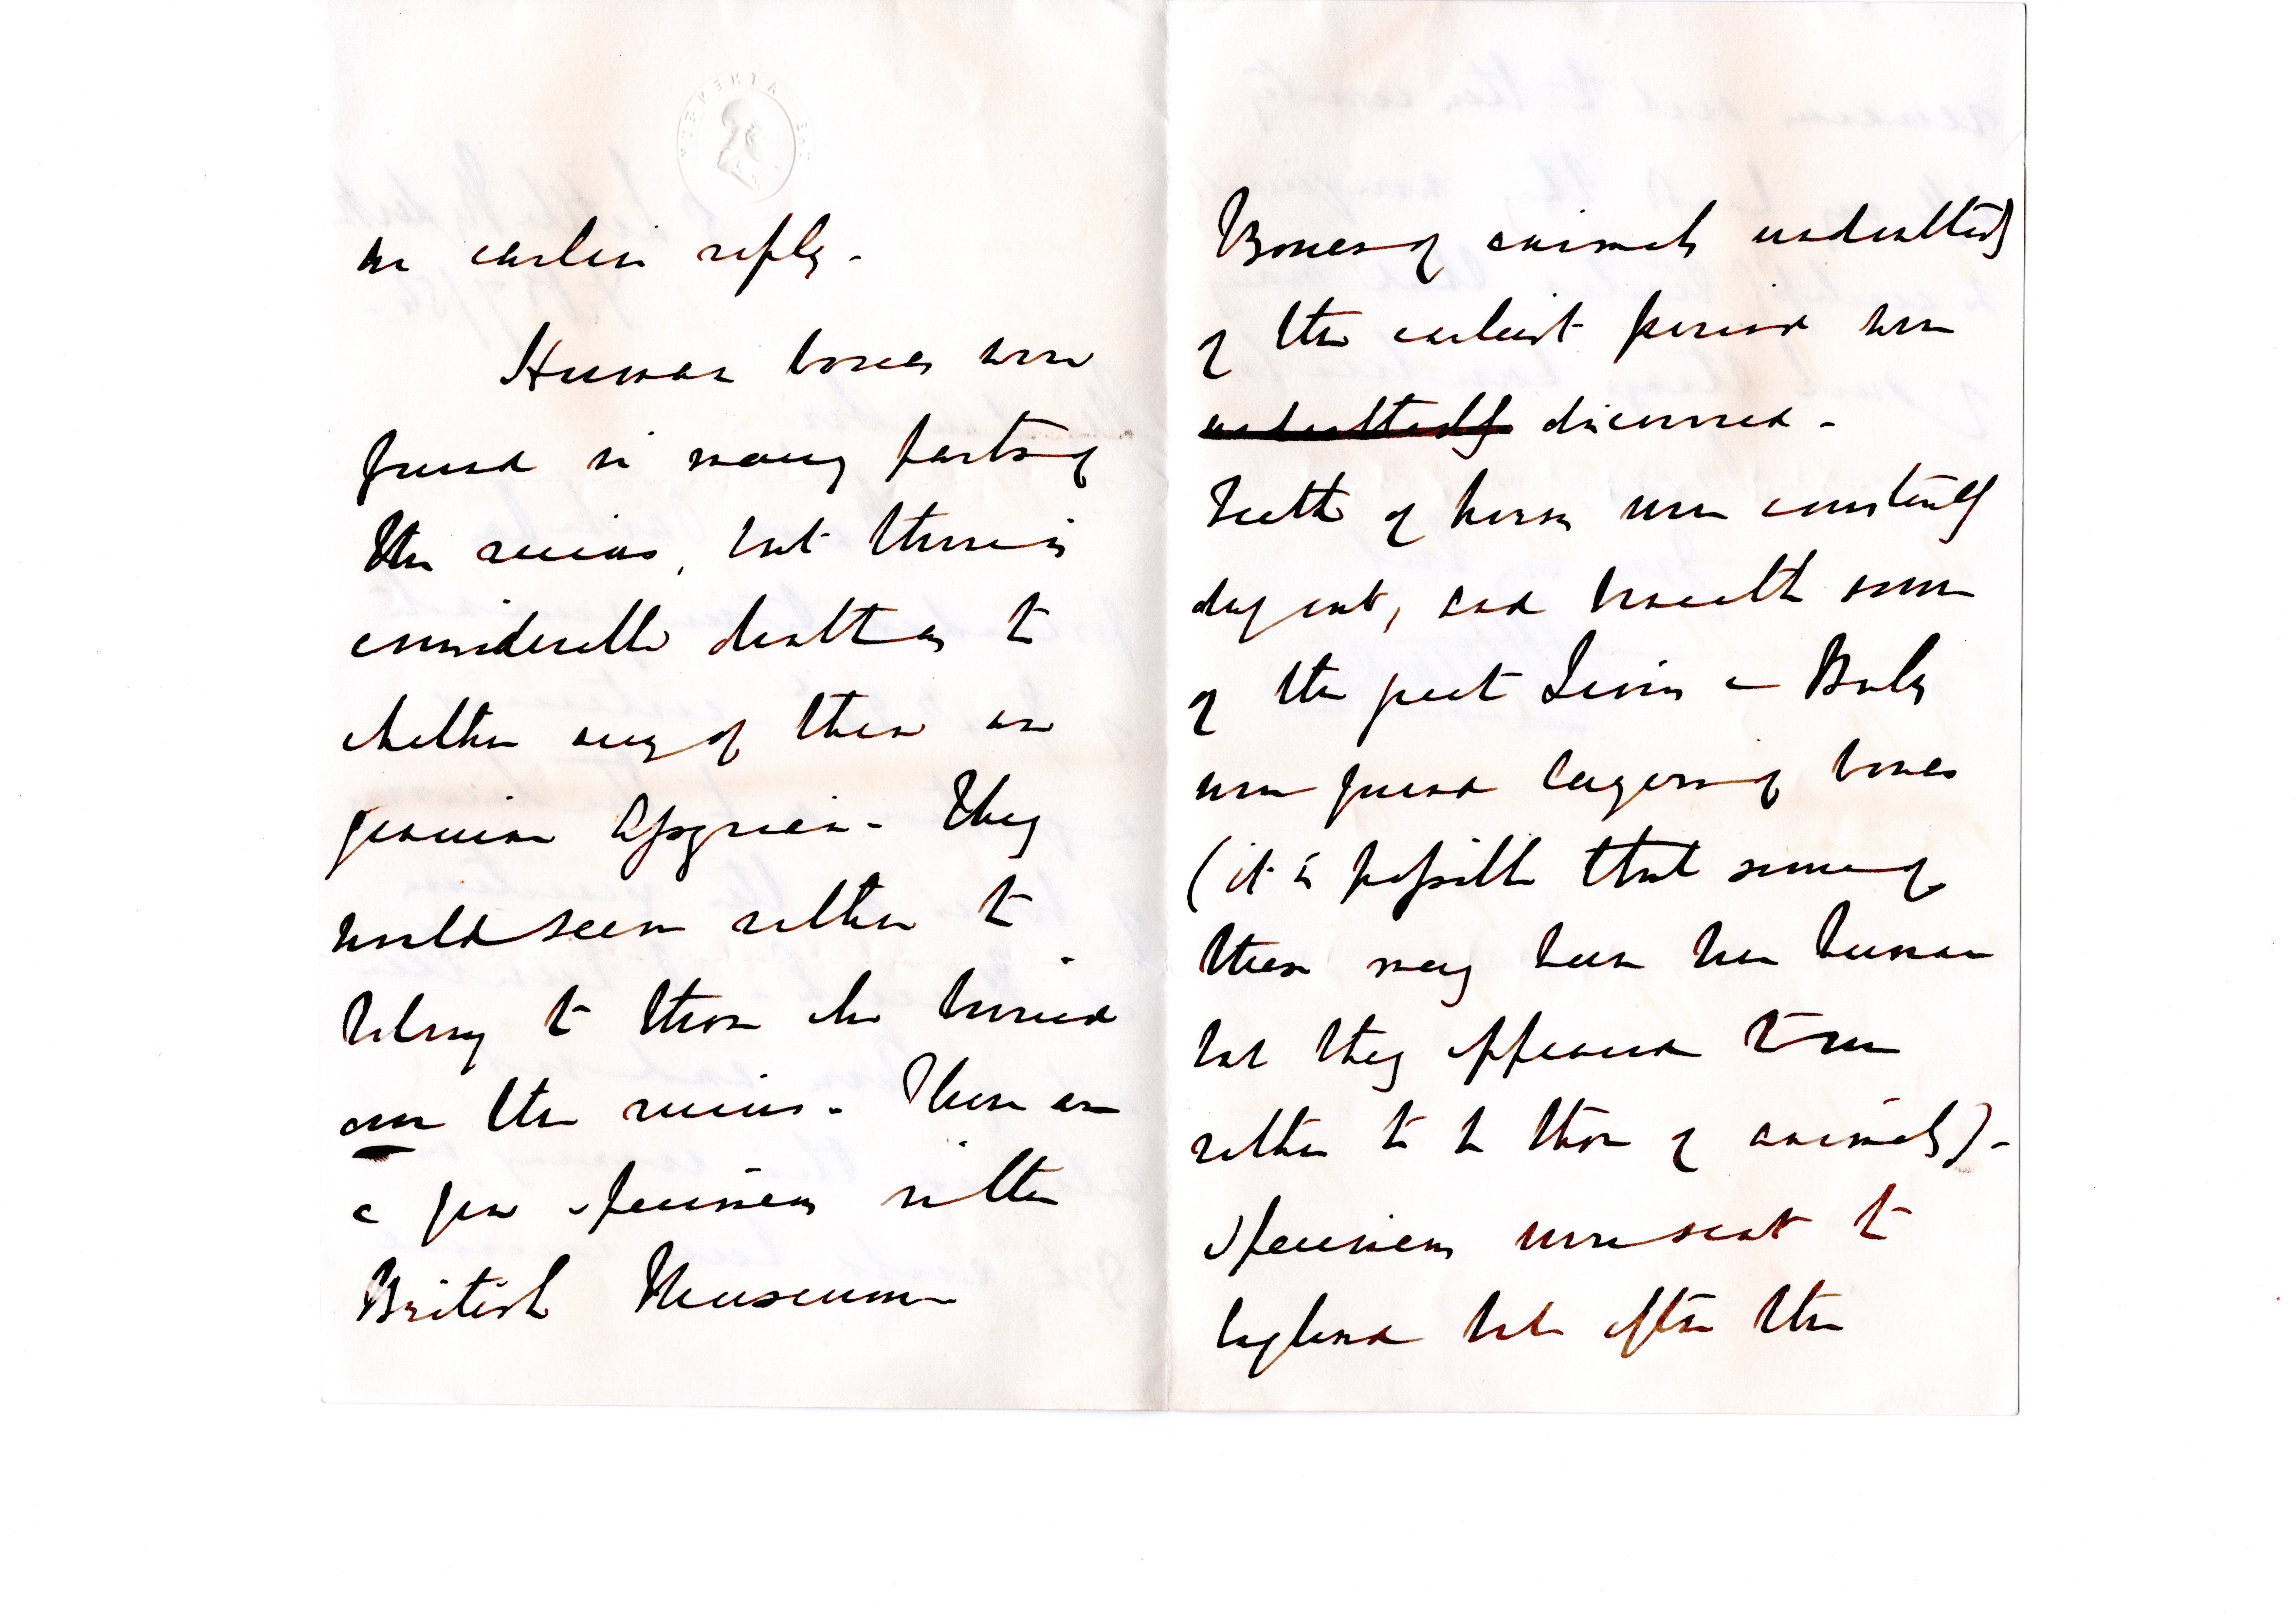 ATHENÆUM
an earlier reply.
Human bones were
found in many parts of
the ruins, but there is
considerable doubt as to
whether any of them are
genuine Assyrian. They
would seem rather to
belong to those who buried
over the ruins. There are
a few specimens in the
British Museum
Bones of animals undoubtedly
of the earliest period were
undoubtedly discovered.
Teeth of horses were constantly
dug out, and beneath some
of the great Lions & Bulls
were found layers of bones
(it is possible that some of
these may have been human
but they appeared to me
rather to be those of animals).
Specimens were sent to
England but after the